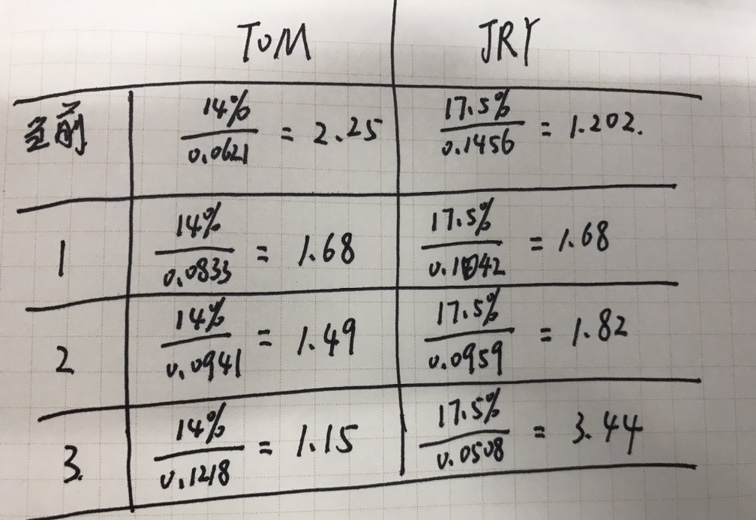 TOM JRY
前 14%/0.0621 = 2.25 17.5%/0.1456 = 1.202.
1 14%/0.0833 = 1.68 17.5%/0.1042 = 1.68
2 14%/0.0941 = 1.49 17.5%/0.0959 = 1.82
3. 14%/0.1218 = 1.15 17.5%/0.0508 = 3.44